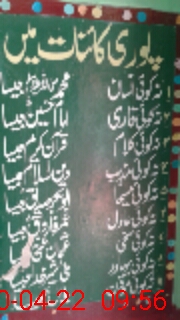 پوری کائنات میں
نہ کوئی انسان محمد ﷺ جیسا
نہ کوئی قاری امام حسینؓ جیسا
نہ کوئی کلام قرآن کریم جیسا
نہ کوئی مذہب دین اسلام جیسا
نہ کوئی سچا ابوبکر صدیقؓ جیسا
نہ کوئی عادل عمر فاروقؓ جیسا
نہ کوئی غنی عثمان غنیؓ جیسا
نہ کوئی بہادر علی
0-04-22 09:56